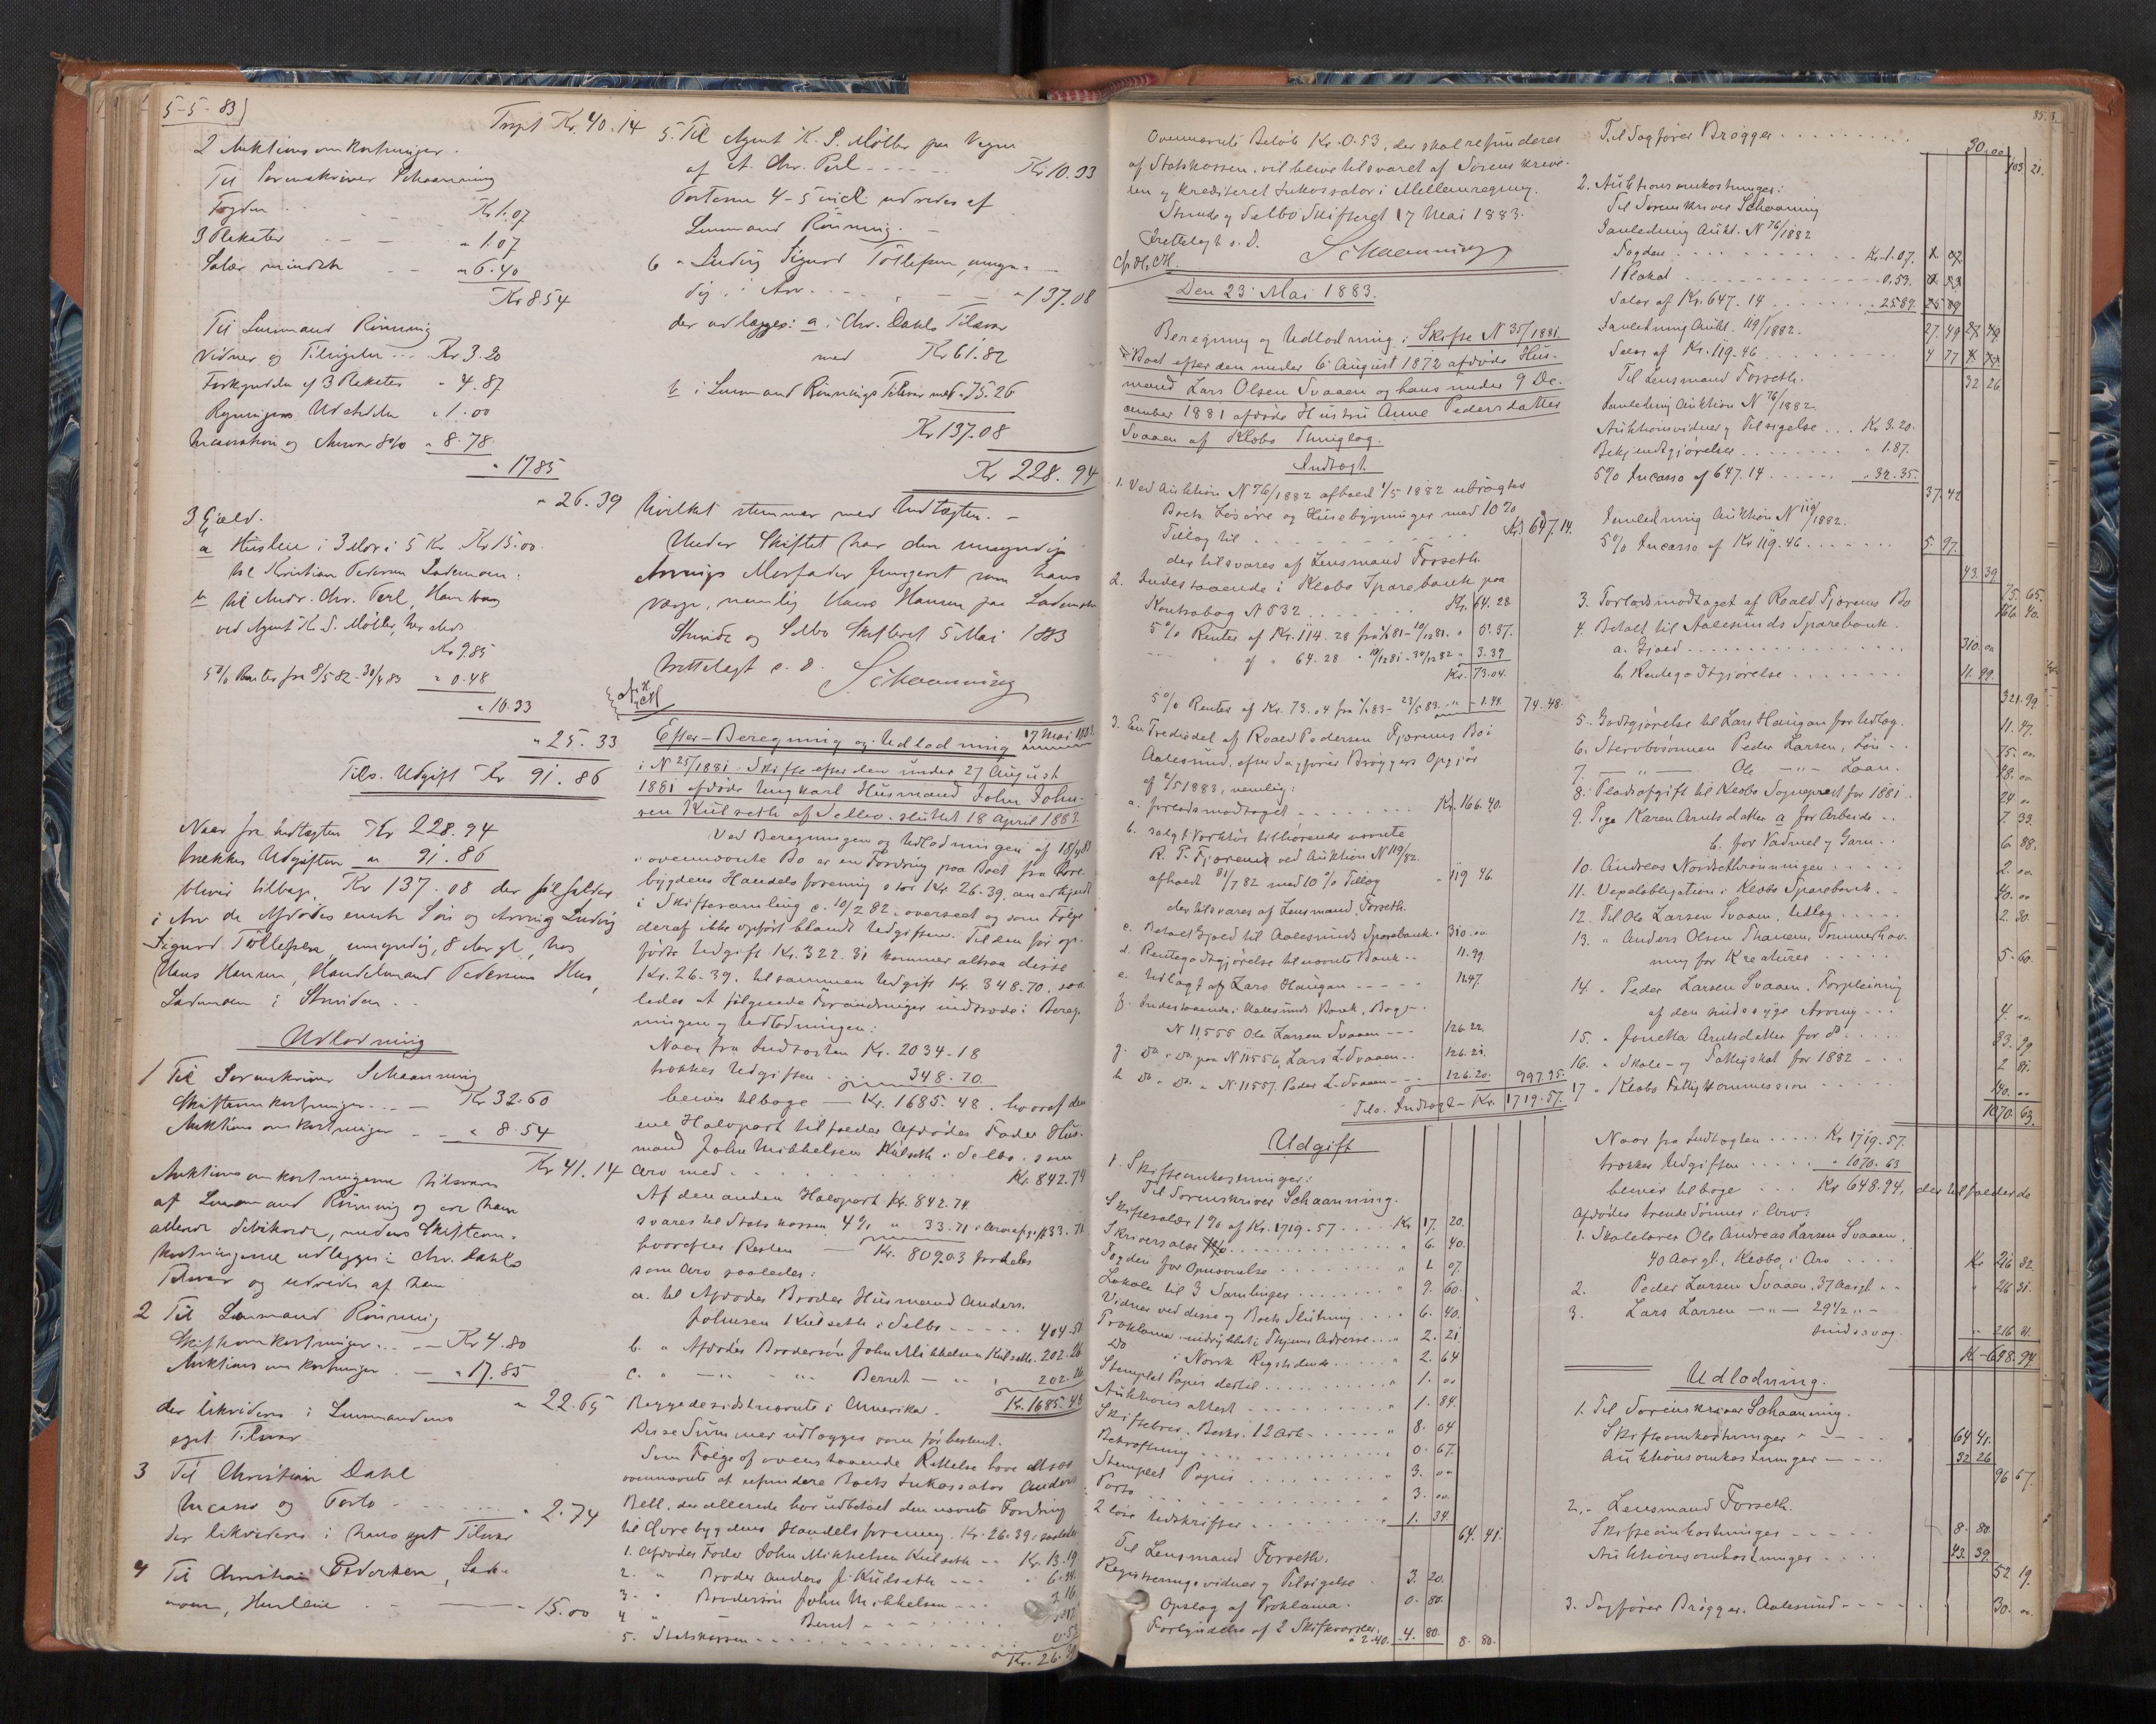 5-5-83
Trspt Kr. 40.14
2 Auktionsomkostninger.
Til Sorenskriver Schaanning
Fogden - - Kr 1.07
3 Plakater - - " 1.07
Salær mindste - - " 6.40
Kr 8.54
Til Lensmand Rønning
Vidner og Tilsigelse ... Kr 3.20
Forkyndelse af 3 Plakater " 4.87
Regningens Udstedelse " 1.00
Incassation og Ansvar 8% " 8.78
" 17.85
" 26.39
3 Gjæld.
a Husleie i 3 Mdr i 5 Kr. Kr 15.00.
til Kristian Pedersen Lademoen.
b til Andr. Chr. Perl, Hamburg
ved Agent K. S. Møller, her sted
Kr 9.85
5% Renter fra 8/5 82 - 30/4 83 " 0.48
" 10.33
" 25.33
Tils. Udgift Kr 91.86
Naar fra Indtægten Kr 228.94
trækkes Udgiften " 91.86
bliver tilbage Kr 137.08 der tilfalder
i Arv de Afdødes eneste Søn og Arving Ludvig
Sigurd Tøllefsen, umyndig, 8 Aar gl., hos
Hans Hansen, Handelsmand Pedersens Hus,
Lademoen i Strinden.
Udlodning
1 Til Sorenskriver Schaanning
Skifteomkostninger ... Kr 32.60
Auktionsomkostninger - " 8.54
Kr 41.14
Auktionsomkostningerne tilsvares
af Lensmand Rønning og er ham
allerede debiterede, medens Skifteom-
kostningerne udlægges i Chr. Dahls
Tilsvar og udredes af ham
2 Til Lensmand Rønning
Skifteomkostninger ... Kr 4.80
Auktionsomkostninger - " 17.85
" 22.65
der likvideres i Lensmandens
eget Tilsvar
3 Til Christian Dahl
Incasso og Porto - - - " 2.74
der likvideres i hans eget Tilsvar
4 Til Christian Pedersen, Lade-
moen, Husleie - - 15.00
5. Til Agent K. S. Møller paa Vegne
af A. Chr. Perl - - - Kr 10.33
Posterne 4-5 incl. udredes af
Lensmand Rønning. -
6 " Ludvig Sigurd Tøllefsen, umyn-
dig, i Arv - - - " 137.08
der udlægges: a i Chr. Dahls Tilsvar
med Kr 61.82
b i Lensmand Rønnings Tilsvar med " 75.26
Kr 137.08
Kr 228.94
Hvilket stemmer med Indtægten. -
Under Skiftet har den umyndige
Arvings Morfader fungeret som hans
Værge, nemlig Hans Hansen paa Lademoen
Strinde og Selbo Skifteret 5 Mai 1883
Fremlagt s. D. Schaanning
Efter-Beregning og Udlodning 17 Mai 1883
i N 25/1881 Skifte efter den under 27 August
1881 afdøde Ungkarl Husmand John John-
sen Kulseth af Selbo. sluttet 18 April 1883
Ved Beregningen og Udlodningen af 18/4 83
i ovennævnte Bo er en Fordring paa Boet fra Øvre-
bygdens Handelsforening stor Kr. 26.39, anerkjendt
i Skiftesamling d. 10/2 82, overseet og som Følge
deraf ikke opført blandt Udgifterne. Til den før op-
førte Udgift Kr. 322.31 kommer altsaa disse
Kr. 26.39, tilsammen Udgift Kr. 348.70, saa-
ledes at følgende Forandringer indtræde i Bereg-
ningen og Udlodningen:
Naar fra Indtægten Kr. 2034-18
trækkes Udgiften - 348.70.
bliver tilbage - Kr. 1685.48. hvoraf den
ene Halvpart tilfalder Afdødes Fader Hus-
mand John Mikkelsen Kulseth i Selbo, som
Arv med - - - Kr. 842.74
Af den anden Halvpart Kr. 842.74
svares til Statskassen 4% " 33.71 i Arveafgift 33.71
hvorefter Resten - Kr. 809.03 fordeles
som Arv saaledes:
a. til Afdødes Broder Husmand Anders
Johnsen Kulseth i Selbo - - - 404.51
b. " Afdødes Brodersøn John Mikkelsen Kulseth. 202.26
c. " - " - " - Berret - " - 202.26
Begge de sidstnævnte i Amerika. Kr. 1685.48
Disse Summer udlægges som før bestemt.
Som Følge af ovenstaaende Rettelse have altsaa
ovennævnte at refundere Boets Inkassator Anders
Bell, der allerede har udbetalt den nævnte Fordring
til Øvrebygdens Handelsforening Kr. 26.39. saaledes
1. Afdødes Fader John Mikkelsen Kulseth - - Kr. 13.19
2. " Broder Anders J. Kulseth - - - 6.34
3. " Brodersøn John Mikkelsen - - 3.16
4 " Berret - - -
5. Statskassen - - - 0.53
Kr. 26.39
Ovennævnte Beløb Kr. 0.53, der skal refunderes
af Statskassen, vil blive tilsvaret af Sorenskrive-
ren og krediteret Inkassator i Mellemregning.
Strinde og Selbo Skifteret 17 Mai 1883.
Fremlagt s. D. Schaanning
Den 23 Mai 1883.
Beregning og Udlodning i Skifte N 35/1881.
i Boet efter den under 6 August 1872 afdøde Hus-
mand Lars Olsen Svaaen og hans under 9 De-
cember 1881 afdøde Hustru Anne Pedersdatter
Svaaen af Klæbo Thinglag.
Indtægt
1. Ved Auktion N 76/1882 afholdt 1/5 1882 udbragtes
Boets Løsøre og Husebygninger med 10%
Tillæg til - - - Kr. 647.14.
der tilsvares af Lensmand Forseth.
2. Indestaaende i Klæbo Sparebank paa
Kontrabog N 532 - - - Kr. 64.28
5% Renter af Kr. 114.28 fra 1/1 81 - 10/12 81. " 5.37.
" af " 64.28 " 10/12 81 - 30/12 82 " 3.39
Kr. 73.04.
5% Renter af Kr. 73.04 fra 1/1 83 - 23/5 83. " - 1.44. 74.48.
3. En Trediedel af Roald Pedersen Fjørems Bo i
Aalesund, efter Sagfører Brøggers Opgjør
af 2/5 1883, nemlig:
a. forlodsmodtaget - - - Kr. 166.40.
b. solgt Værktøi tilhørende nævnte
R. P. Fjørem ved Auktion N 119/82.
afholdt 31/7 82 med 10% Tillæg " 119 46.
der tilsvares af Lensmand Forseth.
c. Betalt Gjæld til Aalesunds Sparebank " 310.00
d. Rentegodtgjørelse til nævnte Bank - - 11.99.
e. Udlagt af Lars Haugan - - - - 11.47.
f. Indestaaende i Aalesunds Bank, Bog -
N 11,555 Ole Larsen Svaaen - - - 126.22.
g. Do. Do. paa N 11556, Lars L. Svaaen - 126.21.
h Do. Do. " N 11557. Peder L. Svaaen - - 126.20. 997.95.
Tils. Indtægt - Kr. 1719.57.
Udgift
1. Skifteomkostninger:
Til Sorenskriver Schaanning.
Skiftesalær 1% af Kr. 1719-57 .... Kr 17. 20.
Skriversalær ... " 6. 40.
Fogden for Opnævnelse ... " 1. 07
Lokale til 3 Samlinger ... " 9. 60.
Vidner ved disse og Boets Slutning ... " 6. 40.
Proklama indrykket i Thjems Adresse ... " 2. 21
Do i Norsk Rigstidende ... " 2. 64
Stemplet Papir dertil ... " 1. 00
Auktionsattest ... " 1. 84.
Skiftebrev, Beskr. 12 Ark ... " 8. 04
Bekræftning ... " 0. 67.
Stemplet Papir ... " 3. 00
Porto ... " 3. 00.
2 løse Udskrifter ... " 1. 34.
64. 41.
Til Lensmand Forseth.
Registreringsvidner og Tilsigelse 3. 20.
Opslag af Proklama. 0. 80.
Forkyndelse af 2 Skiftevarsler. " 2.40. - 4. 80. 8. 80.
Til Sagfører Brøgger ... 30. 00 103. 21.
2. Auktionsomkostninger:
Til Sorenskriver Schaaning
I anledning Aukt. N 76/1882
Fogden ... Kr. 1.07.
1 Plakat ... 0.53.
Salær af Kr. 647.14 ... 25 89. 27. 49
I anledning Aukt. 119/1882.
Salær af Kr. 119.46 ... 4 77
32 26
Til Lensmand Forseth.
I anledning Auktion N 76/1882.
Auktionsvidner og Tilsigelse ... Kr 3.20.
Bekjendtgjørelse ... " 1.87.
5% Incasso af 647.14 ... " 32.35. 37.42
I anledning Auktion N 119/1882.
5% Incasso af Kr 119.46 ... 5. 97.
43. 39. 75. 65.
3. Forlodsmodtaget af Roald Fjørems Bo 166. 40.
4. Betalt til Aalesunds Sparebank.
a. Gjæld ... 310. 00
b. Rentegodtgjørelse ... 11. 99.
321. 99
5. Godtgjørelse til Lars Haugan for Udlæg. 11. 47.
6. Stervbosønnen Peder Larsen, Løn - - 75. 00
7. - " - Ole - " - Laan. 28. 00
8. Pladsafgift til Klæbo Sogneprest for 1881. 24 00
9. Pige Karen Arntsdatter a for Arbeide - - 7. 33.
b. for Vadmel og Garn - - 6. 88.
10. Andreas Nordsetrønningen ... 2. 00
11. Vexelobligation i Klæbo Sparebank. 40. 00
12. Til Ole Larsen Svaaen, Udlæg ... 2. 80.
13. " Anders Olsen Thanem, Sommerhav-
ning for Kreaturer ... 5. 60.
14. " Peder Larsen Svaaen, Forpleining
af den sindssyge Arving - - - 4. 00.
15. " Jonetta Arntsdatter for do ... 33. 99
16. " Skole- og Fattigskat for 1882 - - - 2 81.
17 " Klæbo Fattigkommission ... 140. 00
1070. 63.
Naar fra Indtægten ... Kr 1719.57.
trækkes Udgiften ... " 1070.63
bliver tilbage ... Kr 648.94, der tilfalder de
Afdødes trende Sønner i Arv:
1. Skolelærer Ole Andreas Larsen Svaaen,
40 Aar gl., Klæbo, i Arv ... Kr 216 32.
2. Peder Larsen Svaaen, 37 Aar gl. - - " 216 31.
3. Lars Larsen - " - 29 1/2 " -
sindssvag. " 216 31.
Kr. 648. 94.
Udlodning.
1. Til Sorenskriver Schaanning.
Skifteomkostninger - - - 64 41.
Auktionsomkostninger - - - 32 26
96 67.
2. " Lensmand Forseth.
Skifteomkostninger - - - 8. 80.
Auktionsomkostninger ... 43. 39.
52 19.
3. Sagfører Brøgger, Aalesund - - - 30. 00